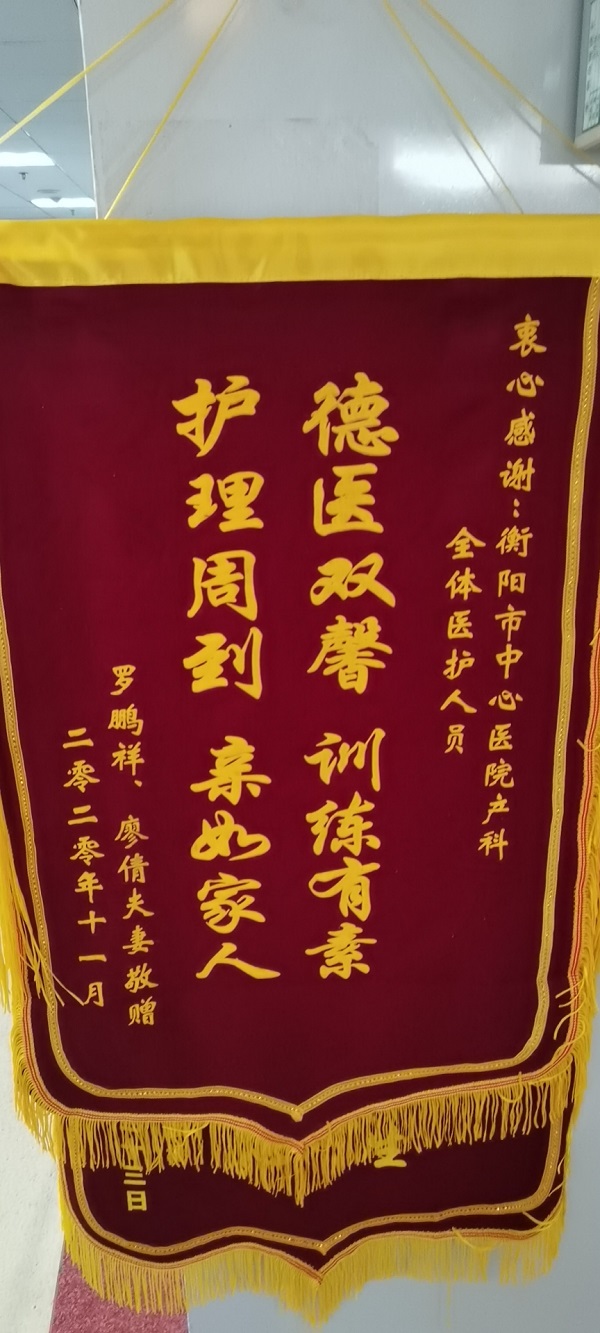 衷心感谢：衡阳市中心医院产科
全体医护人员
德医双馨 训练有素
护理周到 亲如家人
罗鹏祥、廖倩夫妻敬赠
二零二零年十一月
三日